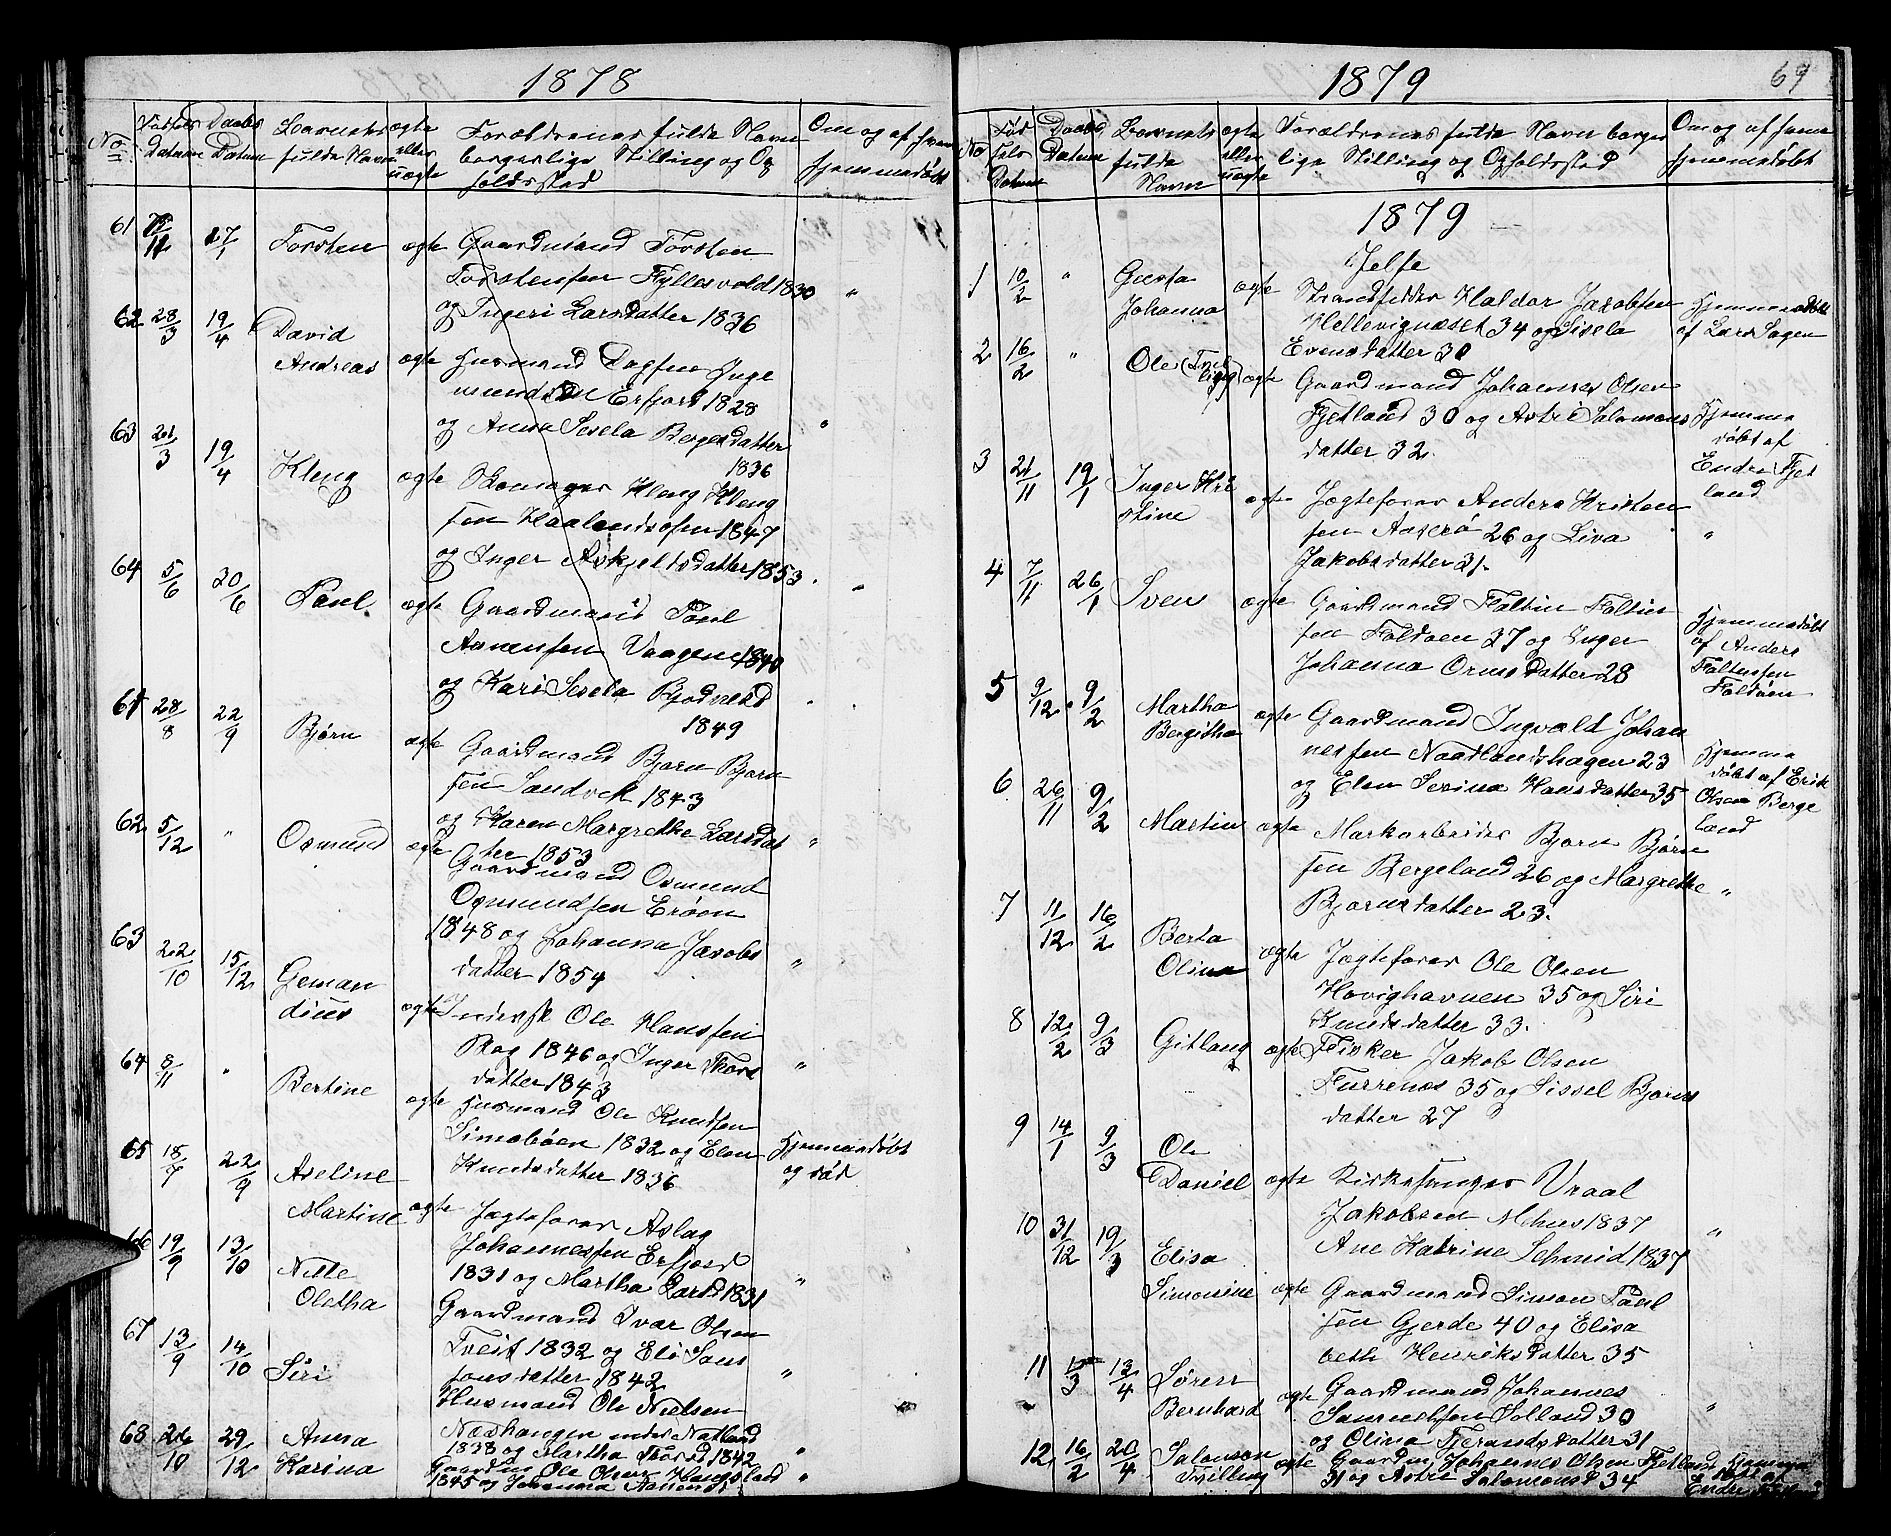 1878
No
Fødsels Datum
Daabs Datum
Barnets fulde Navn
ægte eller uægte
Forældrenes fulde Navn borgerlige Stilling og Opholdssted
Om og af hvem hjemmedøbt
61 11 27/1 Torsten ægte Gaardmand Torsten
Torstensen Fyllesvold 1830 "
og Ingeri Larsdatter 1836
62 28/3 19/4 David
Andreas ægte Husmand Dagfin Inge
mundsen Erfjord 1828
og Anna Sesela Bergesdatter "
1836
63 21/3 19/4 Kleng ægte Skomager Kleng Kleng
sen Haalandsosen 1847
og Inger Askjelsdatter 1853
64 5/6 20/6 Poul ægte Gaardmand Poul "
Vaagen 1840
og Kari Sesela
1849
61 28/8 22/9 Bjørn ægte Gaardmand Bjorn Bjorn
sen Sandvik 1843
og Karen Margrethe Larsdat
ter 1853 "
62 5/12 " Osmund ægte Gaardmand Osmund
Osmundsen Erøen
1848 og Johanna Jacobs
datter 1854 "
63 22/10 15/12 Geman
dius ægte Ole Hanssen
Skog 1846 og Inger
datter 1843 "
64 8/11 " Bertine ægte Husmand Ole Knudsen
Simebøen 1832 og Elen Hjemmedøbt
Knudsdatter 1836 og død
65 18/7 22/9 Aseline
Martine ægte Jagteforer Aslag
Johannessen Erfjord
1831 og Martha Larsd 1831 "
66 19/9 13/10 Nille
Oletha Gaardmand Ivar Olsen
Tveit 1832 og Eli Sans
sonsdatter 1842 "
67 13/9 14/10 Siri Husmand Ole Nielsen
under Natland
1838 og Martha 1842 "
68 26/10 29/12 Anna
Karina Gaardm Ole Olsen
1845 og Johanna "
1879
69
No
Fød sels Datum
Daabs Datum
Barnets fulde Navn
ægte eller uægte
Forældrenes fulde Navn borger
lige Stilling og Opholdssted
Om og af hvem
hjemmedøbt
1879
Jelse
1 10/2 " Gusta
Johanna ægte Strandsidder Haldor Jakobsen Hjemmedøbt
Hellevignæset 34 og Sisela af Lars Sagen
Evensdatter 30
2 16/2 " Ole (Tvil
ling) ægte Gaardmand Johannes Olsen
Fjetland 30 og Astri Salomons Hjemme
datter 32. døbt af
Endre Fjet
land
3 21/11 19/1 Inger Kri
stine ægte Jægteforer Anders Kristen
sen Aaserø 26 og Liva "
Jakobsdatter 31.
4 7/11 26/1 Sven ægte Gaardmand Faltin Faltin
sen Foldøen 37 og Inger Hjemmedøbt
Johanna Ormsdatter 28 af Anders
Faltensen
Foldøen
5 9/12 9/2 Martha
Bergitha ægte Gaardmand Ingvald Johan
nessen Naadlandshagen 23 Hjemme
og Elen Serina Hansdatter 35 døbt af Erik
Olsen Berge
land
6 26/11 9/2 Martin ægte Markarbeider Bjorn Bjørn
sen Bergeland 26 og Margrethe "
Bjornsdatter 23.
7 11/12 16/2 Berta
Olina ægte Jagteforer Ole Olsen
Hovighavnen 35 og Siri
Knudsdatter 33.
8 12/2 9/3 Gitlaug ægte Fisker Jakob Olsen
Furrenæs 35 og Sissel Bjorns
datter 27
9 14/1 9/3 Ole
Daniel ægte Kirkesanger Vraal
Jakobsen Mehus 1837
Ane Katrine Schmid 1837 "
10 31/12 19/3 Elisa
Simonine ægte Gaardmand Simon Poul
sen Gjerde 40 og Elisa
beth Henriksdatter 35
11 /3 13/4 Søren
Bernhard ægte Gaardmand Johannes
Samuelsen Solland 30 "
og Olina datter 31
12 16/2 20/4 Salomon
Tvilling ægte Gaardm Johannes Olsen Fjetland Hjemme
31 og Astri Salomonsd 34 døbt af
Endre